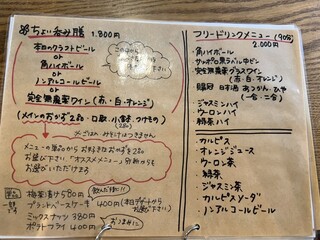 ちょい呑み膳 1,800円
本日のクラフトビール
or
角ハイボール
or
ノンアルコールビール
or
完全無農薬ワイン(赤・白・オレンジ)
(メインのおかず2品・口取・小宮
※ごはん・みそ汁はつきません
メニューの単品からお好きなおかずを2品
お選び下さい。「オススメメニュー」別紙からも
お選びいただけます
単品
梅茶漬け 580円
ブランドベースケーキ 400円
ミックスナッツ 380円
ポテトフライ 400円
おつまみに
フリードリンクメニュー (90分)
2,000円
・角ハイボール
・サッポロ黒ラベル中ビン
・完全無農薬グラスワイン
(赤・白・オレンジ)
・日本酒 あつかん・ひや
(一合・二合)
・ジャスミンハイ
・ウーロンハイ
・緑茶ハイ
・カルピス
・オレンジジュース
・ウーロン茶
・緑茶
・ジャスミン茶
・カルピスソーダ
・ノンアルコールビール